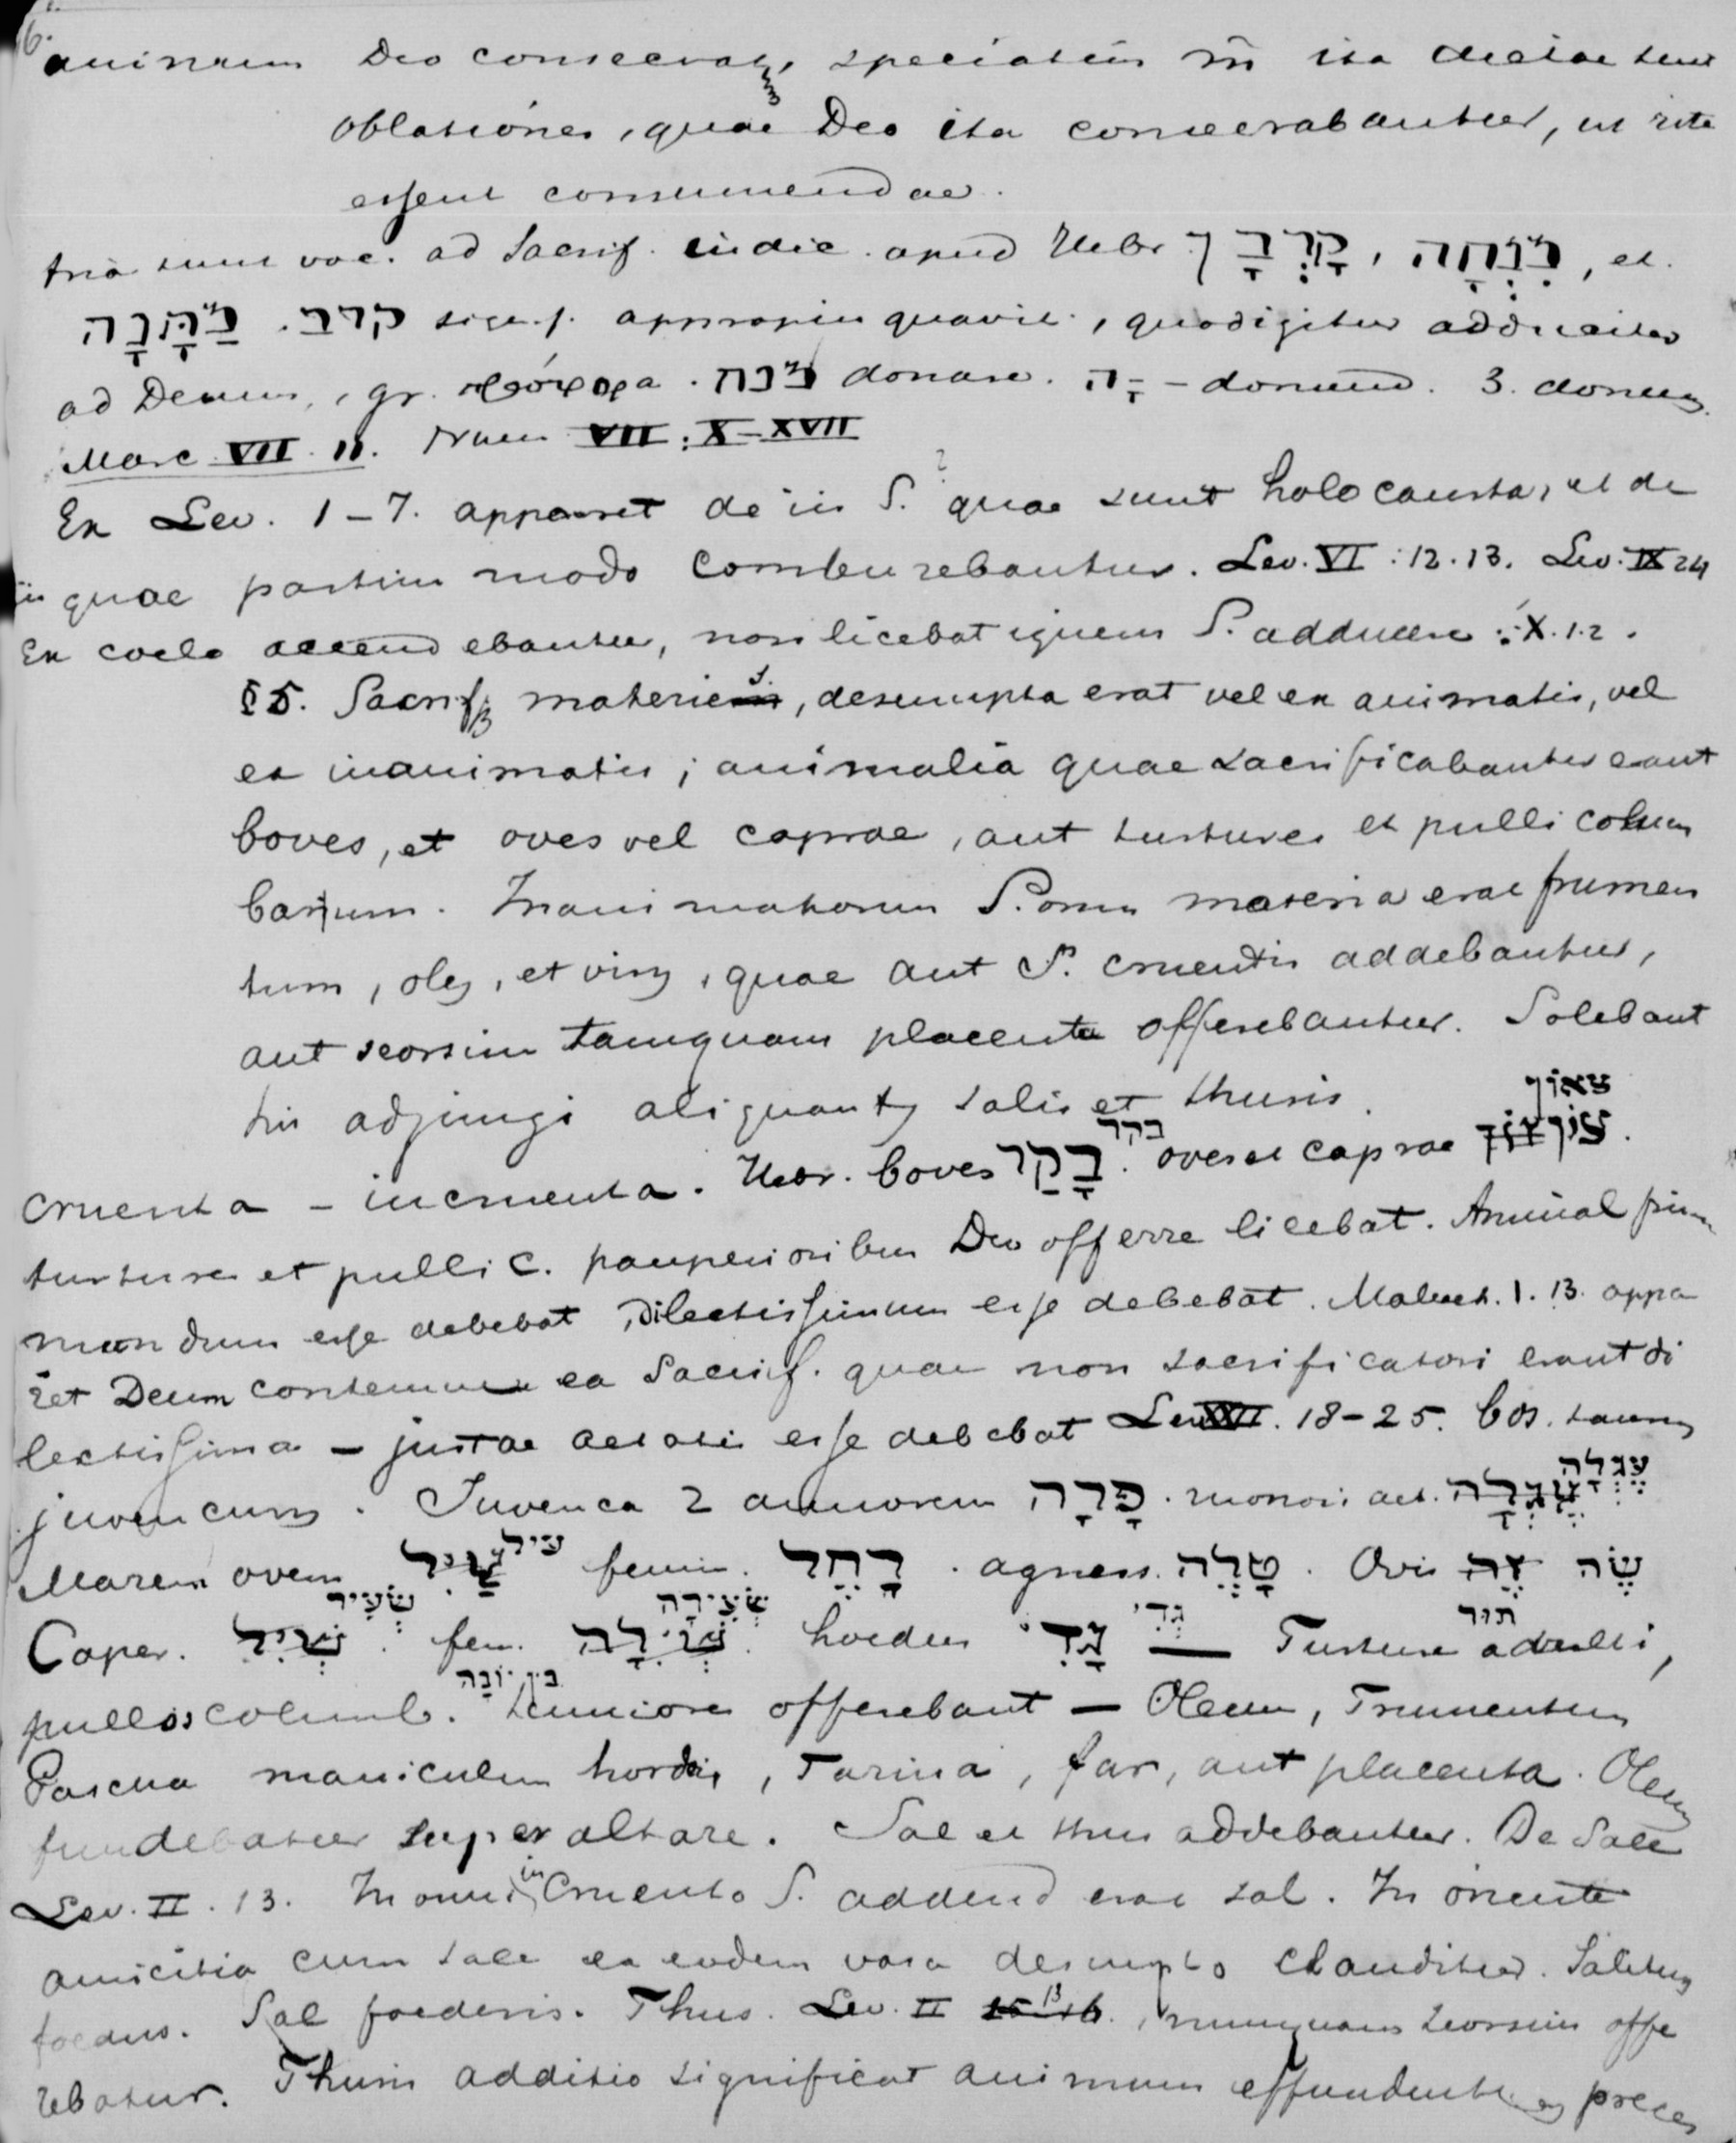 6.
animum Deo consecrat, speciatim m̄ ita dictae sunt
oblationes, quae Deo ita consecrabantur, ut rite
essent consumendae.
tria sunt voc. ad Sacrif. indic. apud Hebr. קָרְבָּן, מִנְחָה, et.
מַתָּנָה. קרב signif. appropinquavit, quod igitur adducitur
ad Deum, gr. πρόσφορα. מנח donare. ־ָה – donum. 3. donum.
Marc VII. 11. Num VII: X–XVII
Ex Lev. 1–7. apparet de iis S. quae sunt holocausta, et de
iis quae partim modo comburebantur. Lev. VI: 12. 13. Lev. IX 24
Ex coelo accendebantur, non licebat ignem S. adducere: X. 1. 2.
§ 5. Sacrif. materies, desumpta erat vel ex animatis, vel
ex inanimatis; animalia quae sacrificabantur erant
boves, et oves vel caprae, aut turtures et pulli colum
barum. Inanimatorum S.orum materia erat frumen
tum, oleum, et vinum, quae aut S. cruentis addebantur,
aut seorsim tamquam placenta offerebantur. Solebant
his adjungi aliquantum salis et thuris.
צאון
cruenta – incruenta. Hebr. boves בָּקַר בקר. oves et caprae צוֹן.
turtures et pulli c. pauperioribus Deo offerre licebat. Animal pri
mundum esse debebat, dilectissimum esse debebat. Malach. 1. 13. appa
ret Deum contemnere ea Sacrif. quae non sacrificatori erant di
lectissima – justae aetatis esse debebat Lev XXII. 18–25. bos. taurum
עֶגְלָה
juvencum. Juvenca 2 annorum פָּרָה. minori aet. עֶגְלָה
Marem ovem עיל femin. רָחֶל. agnus. טָלֶה. Ovis זֶה שֶׂה
שְׂעִיר שְׂעִירָה גְּדִי תור
Caper. fem. hoedus גָּדִי — Turture adulti,
בן יוֹנָה
pullos columb. juniores offerebant – Oleum, Frumentum
Pascha maniculum hordei, Farina, far, aut placenta. Oleum
fundebatur super altare. Sal et thus addebantur. De Sale
Lev. II. 13. In omni in Cruento S. addend erat sal. In oriente
amicitia cum sale ex eodem vase desumpto clauditur. Salitum
foedus. Sal foederis. Thus. Lev. II 15 16. 13, numquam seorsim offe
rebatur. Thuris additio significat animum effundentem preces